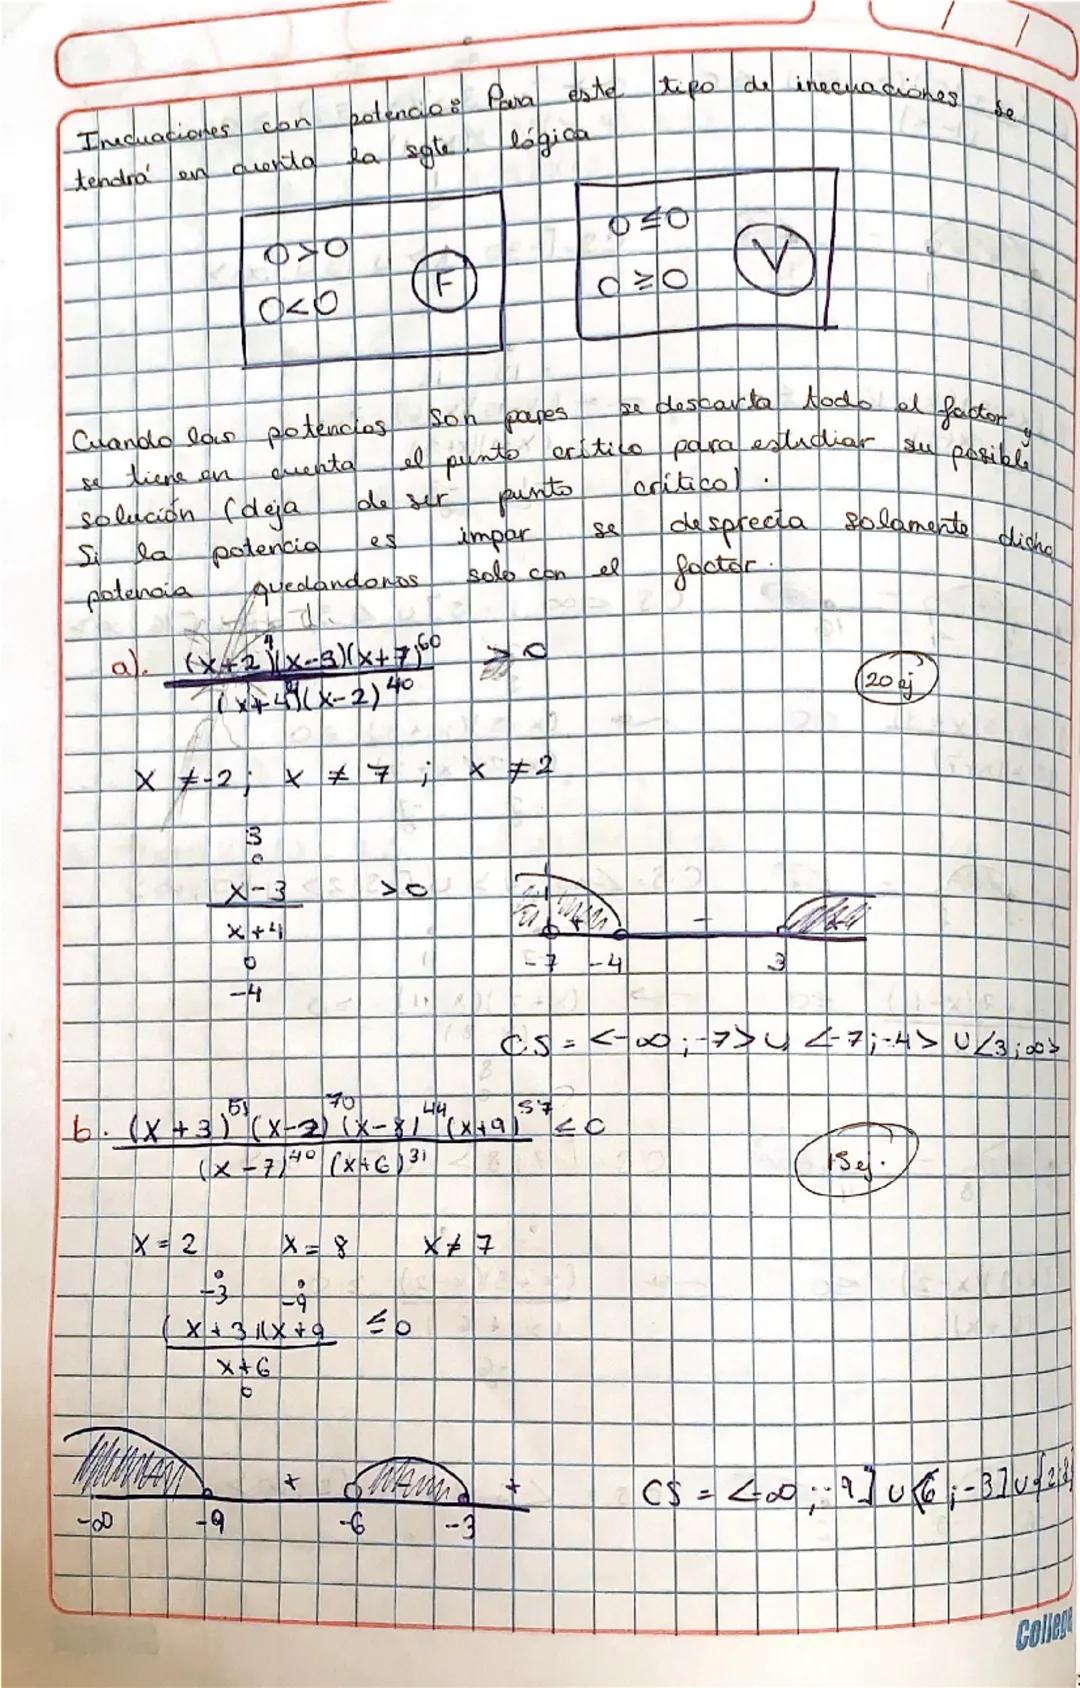 Inecuaciones con potencias: Para este tipo de inecuaciones se
tendrá en cuenta la sgte. lógica
0>0
0<0
F
0≤0
0≥0
V
Cuando las potencias son pares se descarta todo el factor y
se tiene en cuenta el punto crítico para estudiar su posible
solución (deja de ser punto crítico).
Si la potencia es impar se desprecia solamente dicha
potencia quedandonos solo con el factor.
a). (x+2)⁴(x-3)(x+7)⁶⁰ > 0
(x+4)(x-2)⁴⁰
20 ej
x ≠ -2; x ≠ 7; x ≠ 2
3
x-3 >0
x+4
-4
-7 -4 - 3
C.S = <-∞;-7> U <-7;-4> U <3;∞>
b. (x+3)⁵¹(x-2)⁷⁰(x-8)⁴⁴(x+9)⁵⁷ ≤0
(x-7)⁴⁰ (x+6)³¹
15 ej.
x = 2 x = 8 x ≠ 7
-3 -9
(x+3)(x+9 ≤0
x+6
+ +
-∞ -9 -6 -3
CS = <-∞;-9] U <6;-3] U {2;8}
College